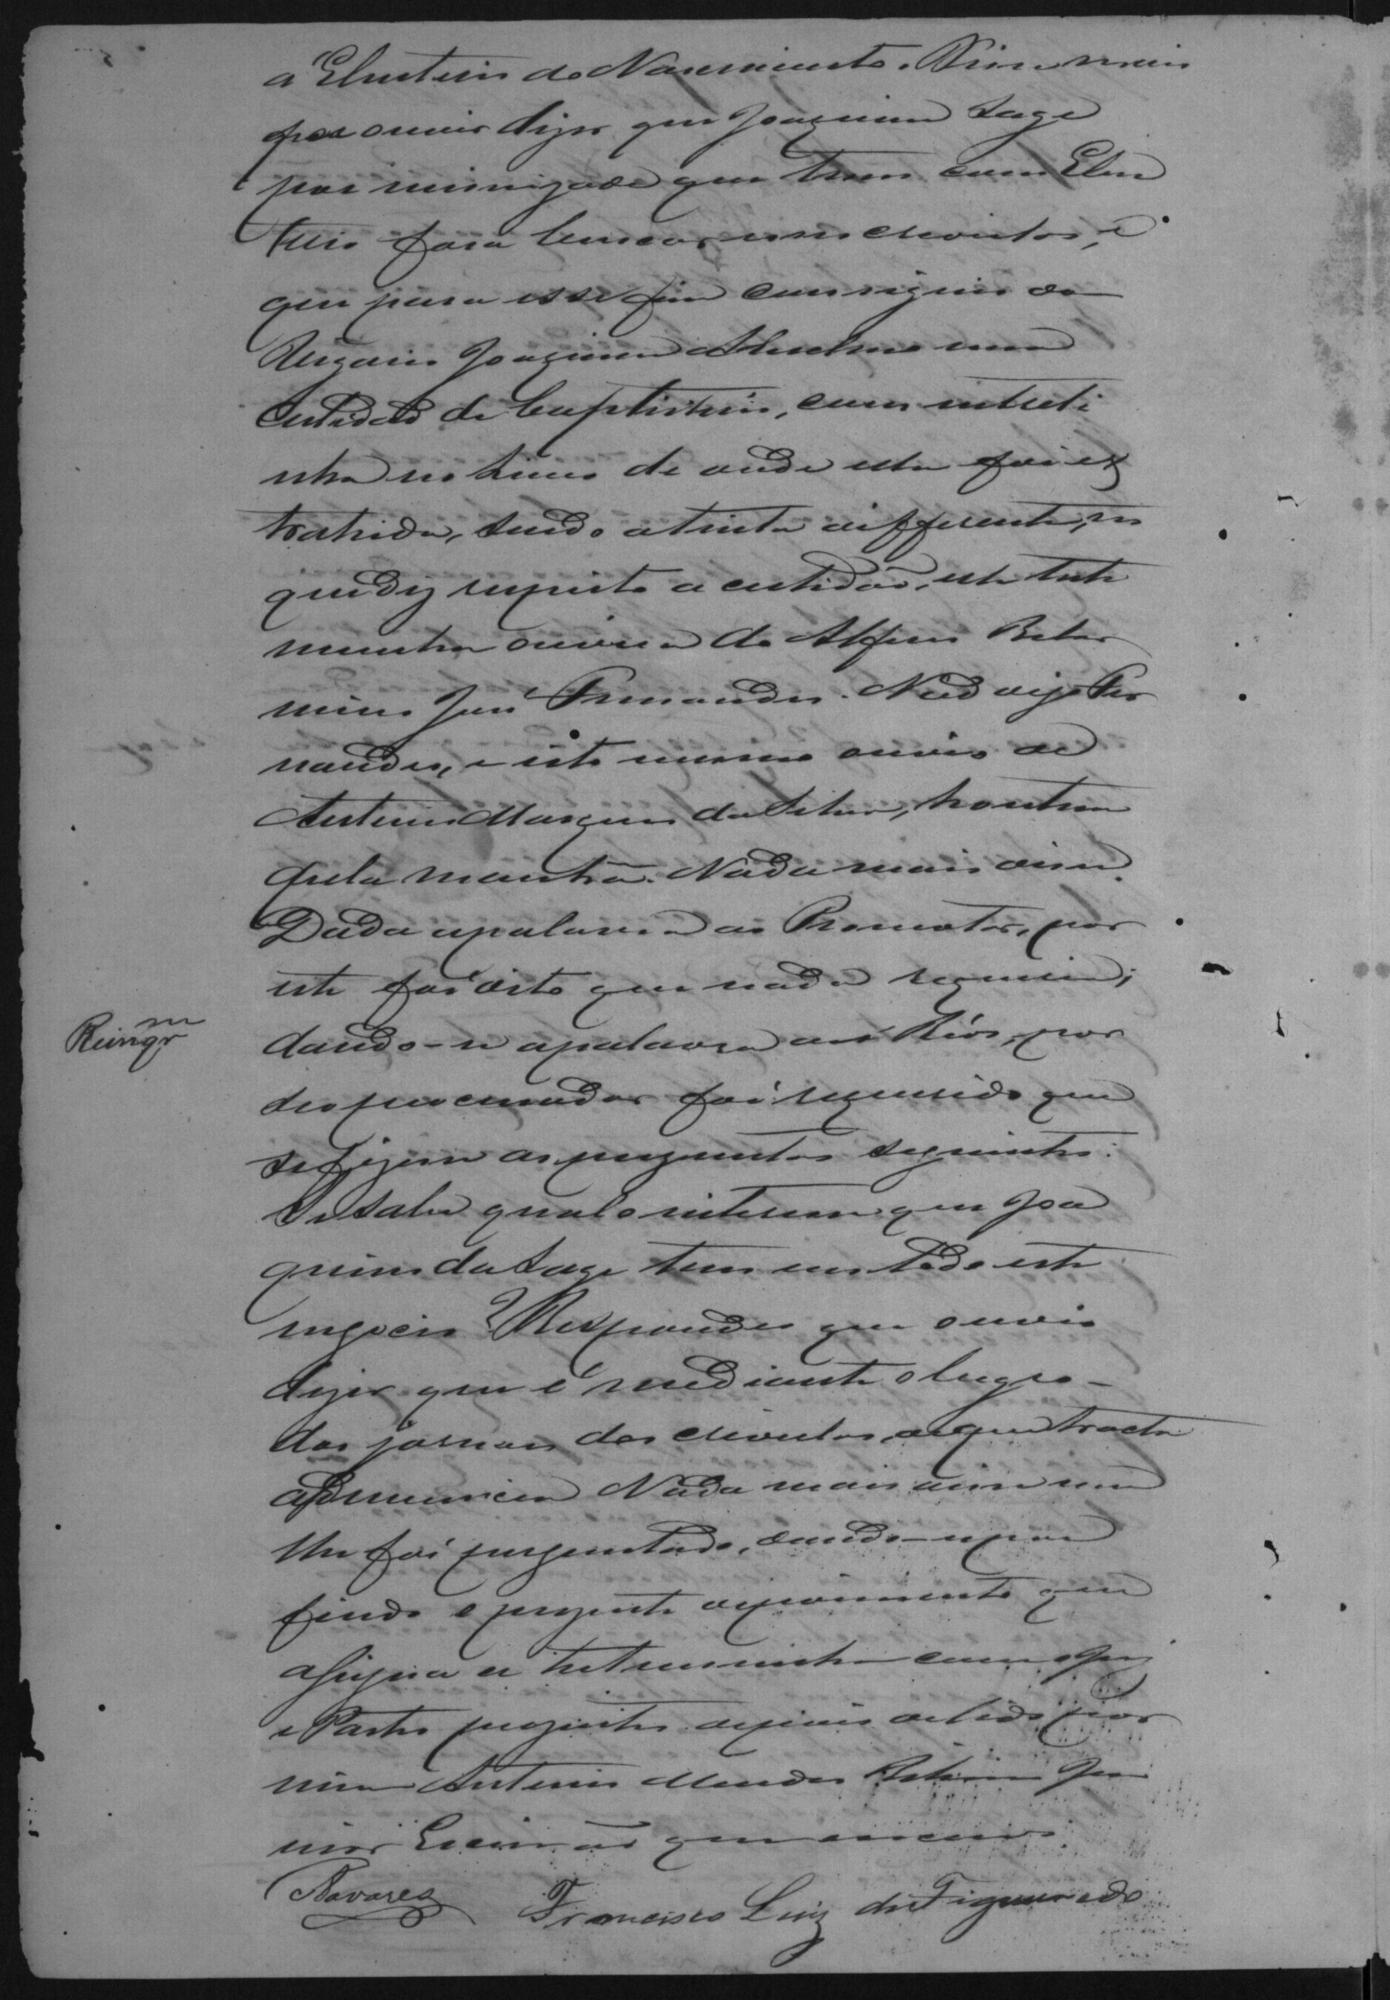 a Eleuterio do Nascimento. Disse mais
por ouvir dizer que Joaquim Lage
por inimizade que tem com Eleu
terio fora buscar uns escravos, e
que para esse fim conseguio do
Joaquim Anselmo uma
certidão de baptisterio, com entreli
nha no livro de onde esta foi ex
trahida, sendo a tinta differente, no
que diz respeito a certidão, esta teste
munha ouvira do Alferes Belar
mino José Fernandes. Não digo Fer
nandes, e isto mesmo ouvio de
Antonio Marques da Silva, hontem
pela manhã. Nada mais disse.
Dada a palavra ao Promotor, por
este foi dito que nada requeria;
Reingr.m
dando-se a palavra aos Réos, por
seo procurador foi requerido que
se fizesse as perguntas seguintes:
Se sabe qual o interesse que Joa
quim da Lage tem em todo este
negocio? Respondeu que ouvio
dizer que é mediante o lucro
dos jornaes dos escravos, de que tracta
a denuncia. Nada mais disse nem
lhe foi perguntado, dando-se por
findo o presente depoimento que
assigna a testemunha com o Juiz
e Partes presentes depois de lido por
mim Antonio Mendes Ju
nior Escrivão que escrevi.
Tavares Francisco Luiz de Figueiredo